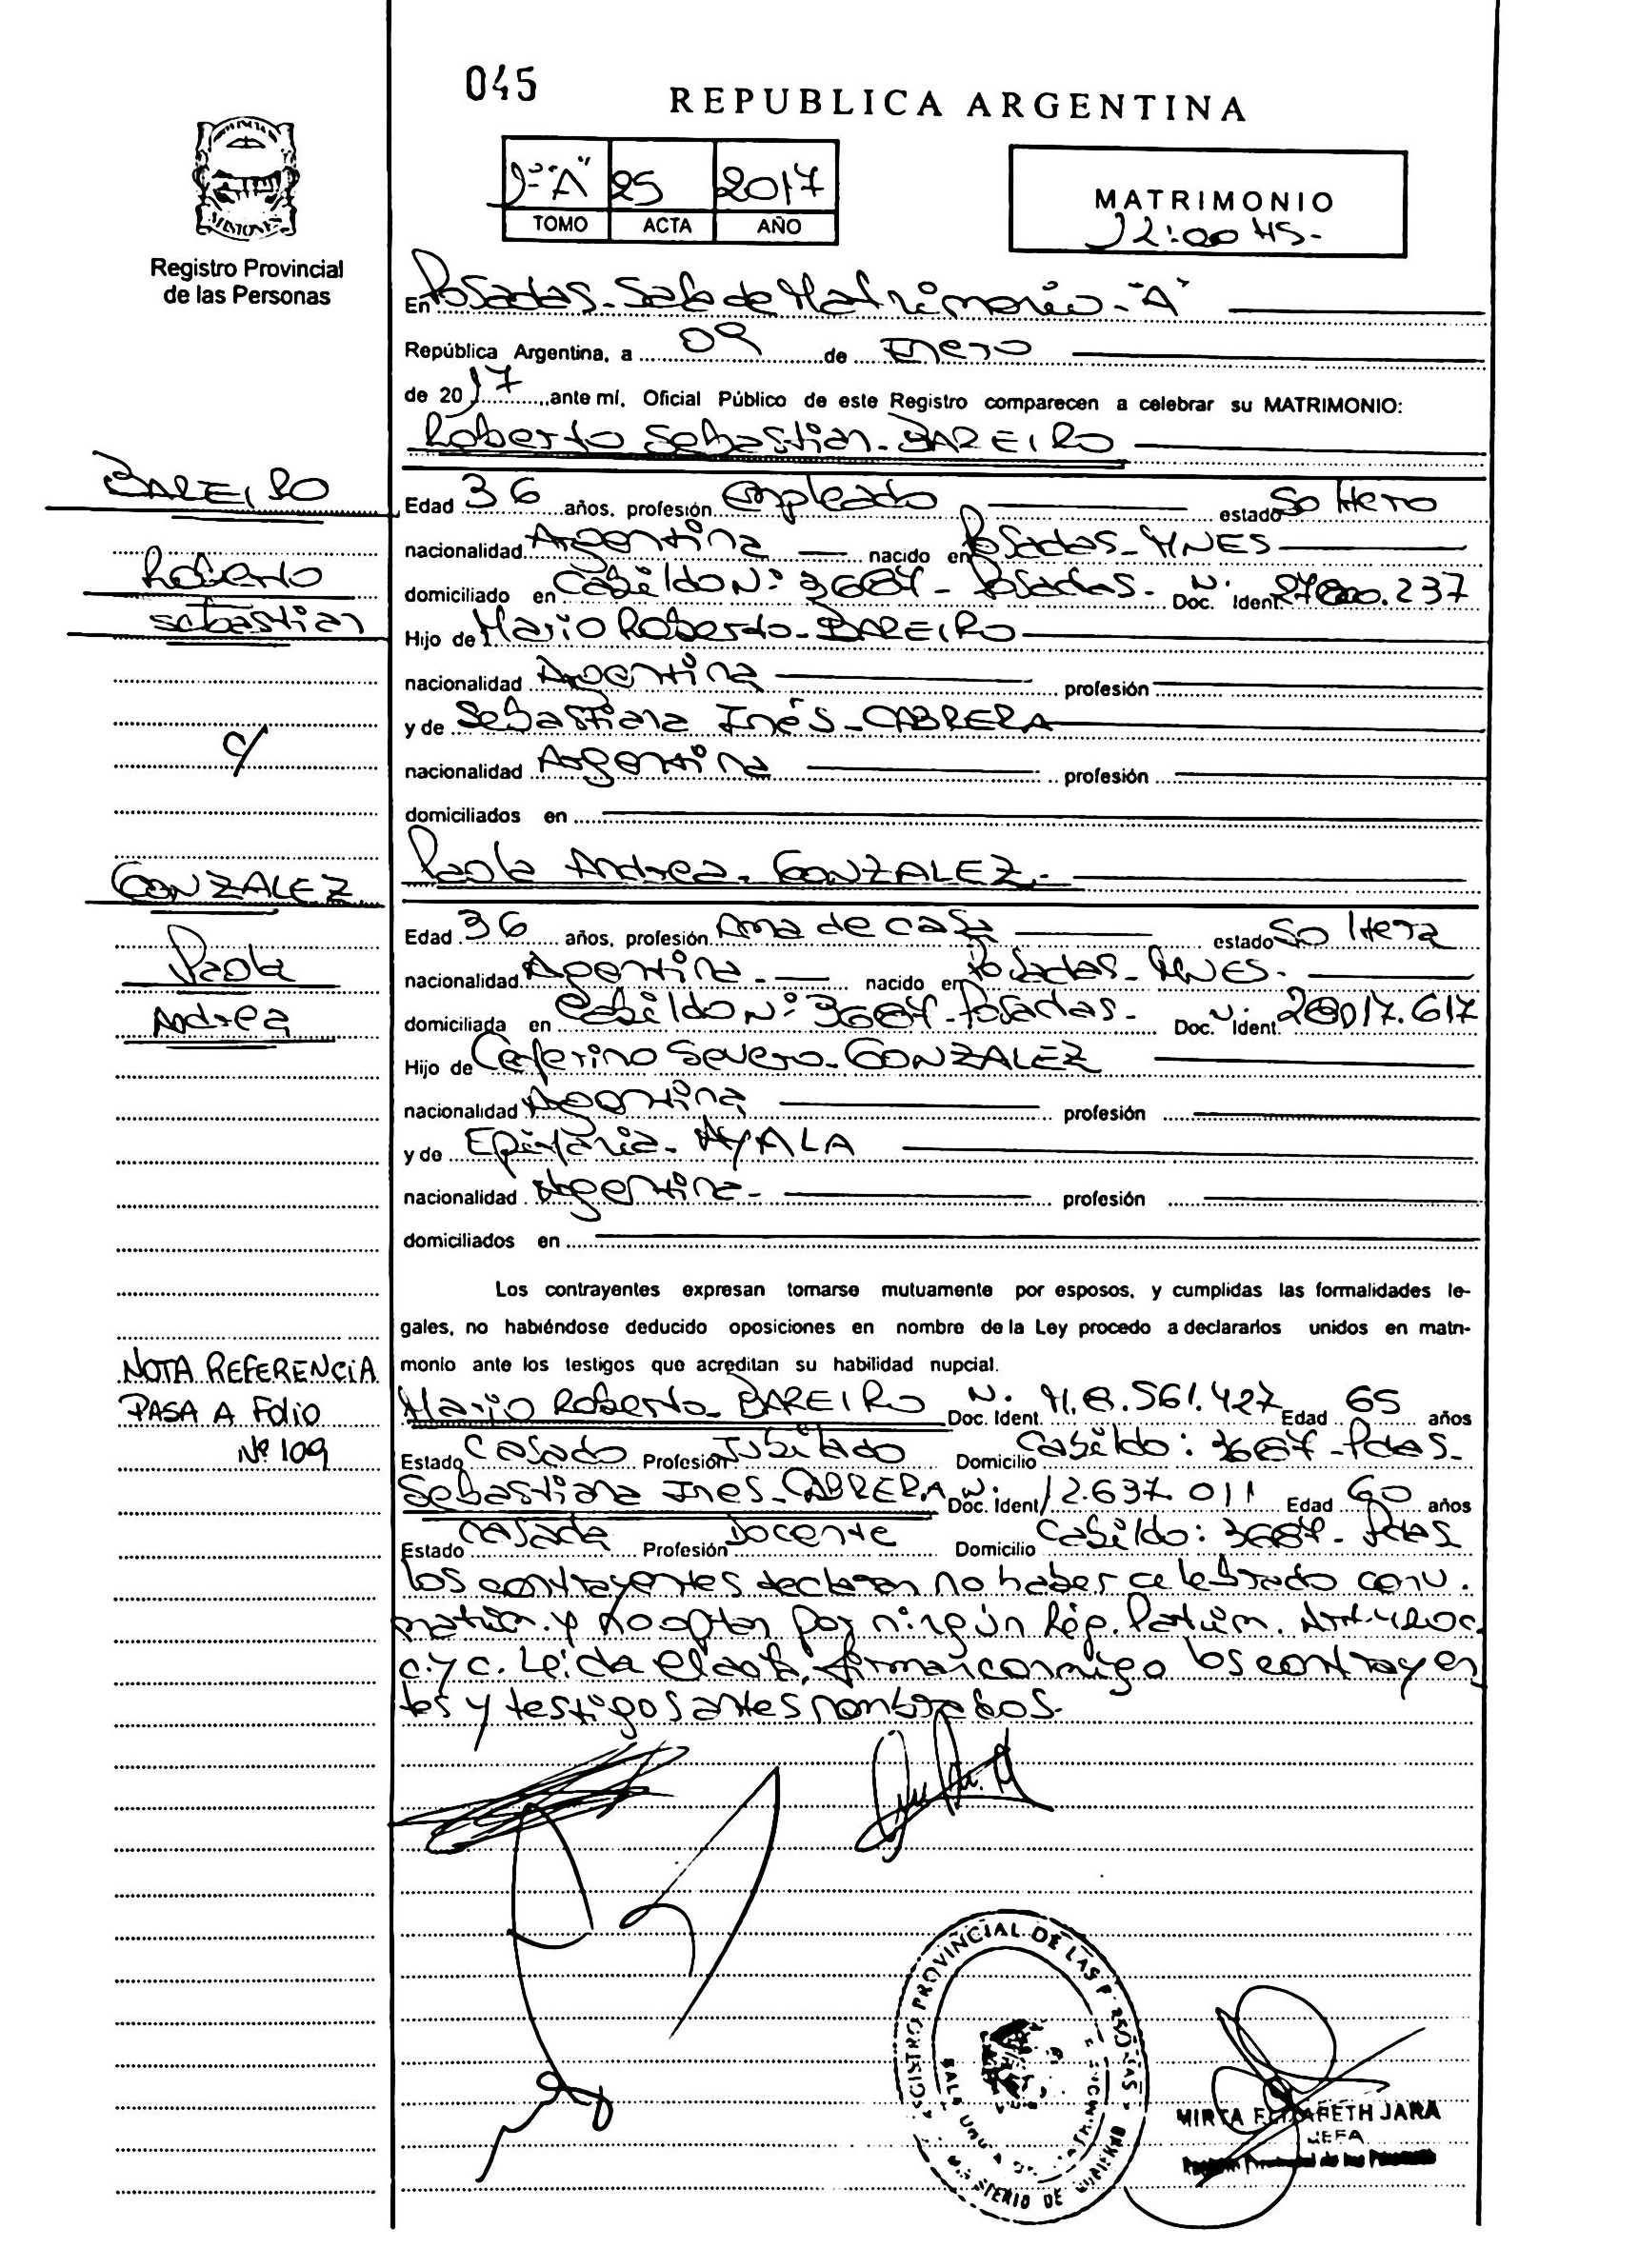 045
REPUBLICA ARGENTINA
1º "A" 25 2017
TOMO ACTA AÑO
MATRIMONIO
12:00 HS-
Registro Provincial
de las Personas
En Posadas - Sala de Matrimonio - "A"
República Argentina, a 09 de Enero
de 2017 ante mí, Oficial Público de este Registro comparecen a celebrar su MATRIMONIO:
Roberto Sebastian - BAREIRO
BAREIRO
Roberto
Sebastian
c/
GONZALEZ
Paola
Andrea
Edad 36 años, profesión Empleado estado Soltero
nacionalidad Argentina nacido en Posadas - MNES
domiciliado en Cabildo Nº: 3687 - Posadas - Doc. Ident. Nº 27.000.237
Hijo de Mario Roberto - BAREIRO
nacionalidad Argentina profesión
y de Sebastiana Inés - CABRERA
nacionalidad Argentina profesión
domiciliados en
Paola Andrea - GONZALEZ -
Edad 36 años, profesión Ama de casa estado Soltera
nacionalidad Argentina - nacido en Posadas - MNES -
domiciliada en Cabildo Nº: 3687 - Posadas - Doc. Ident. Nº 28.017.617
Hijo de Ceferino Severo - GONZALEZ
nacionalidad Argentina profesión
y de Epifania - AYALA
nacionalidad Argentina - profesión
domiciliados en
Los contrayentes expresan tomarse mutuamente por esposos, y cumplidas las formalidades le-
gales, no habiéndose deducido oposiciones en nombre de la Ley procedo a declararlos unidos en matri-
monio ante los testigos que acreditan su habilidad nupcial.
NOTA REFERENCIA
PASA A Folio
Nº 109
Mario Roberto - BAREIRO Doc. Ident. Nº M.8.561.427 Edad 65 años
Estado Casado Profesión Jubilado Domicilio Cabildo: 3687 - Pdas -
Sebastiana Ines - CABRERA Doc. Ident. Nº 12.637.011 Edad 60 años
Estado Casada Profesión Docente Domicilio Cabildo: 3687 - Pdas
Los contrayentes declaran no haber celebrado conv.
matrim. y no optan por ningún Rég. Patrim. Art. 420 c.
c. y c. Leída el acta, firman conmigo los contrayen
tes y testigos antes nombrados.
REGISTRO PROVINCIAL DE LAS PERSONAS
MINISTERIO DE GOBIERNO
MIRTA ELIZABETH JARA
JEFA
Registro Provincial de las Personas